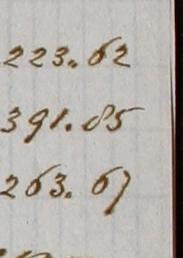 223.62
391.85
263.67